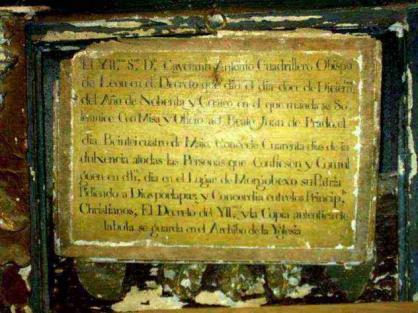 El Yll.mo S.r D.n Cayetano Antonio Cuadrillero Obispo
de Leon en el Decreto que dio el dia doce de Diciem.e
del Año de Nobenta y Cuatro en el que manda se So
lemnice Con Misa y Oficio al Beato Juan de Prado, el
dia Beinteicuatro de Maio, Concede Cuarenta dias de in
dulxencia atodas las Personas que Confiesen y Comul
guen en d.ho dia en el Lugar de Morgobexo su Patria
Pidiendo a Dios por la paz y Concordia entre los Princip.s
Christianos, El Decreto del Yll. y la Copia autentica de
la bola se guarda en el Archibo de la Yglesia